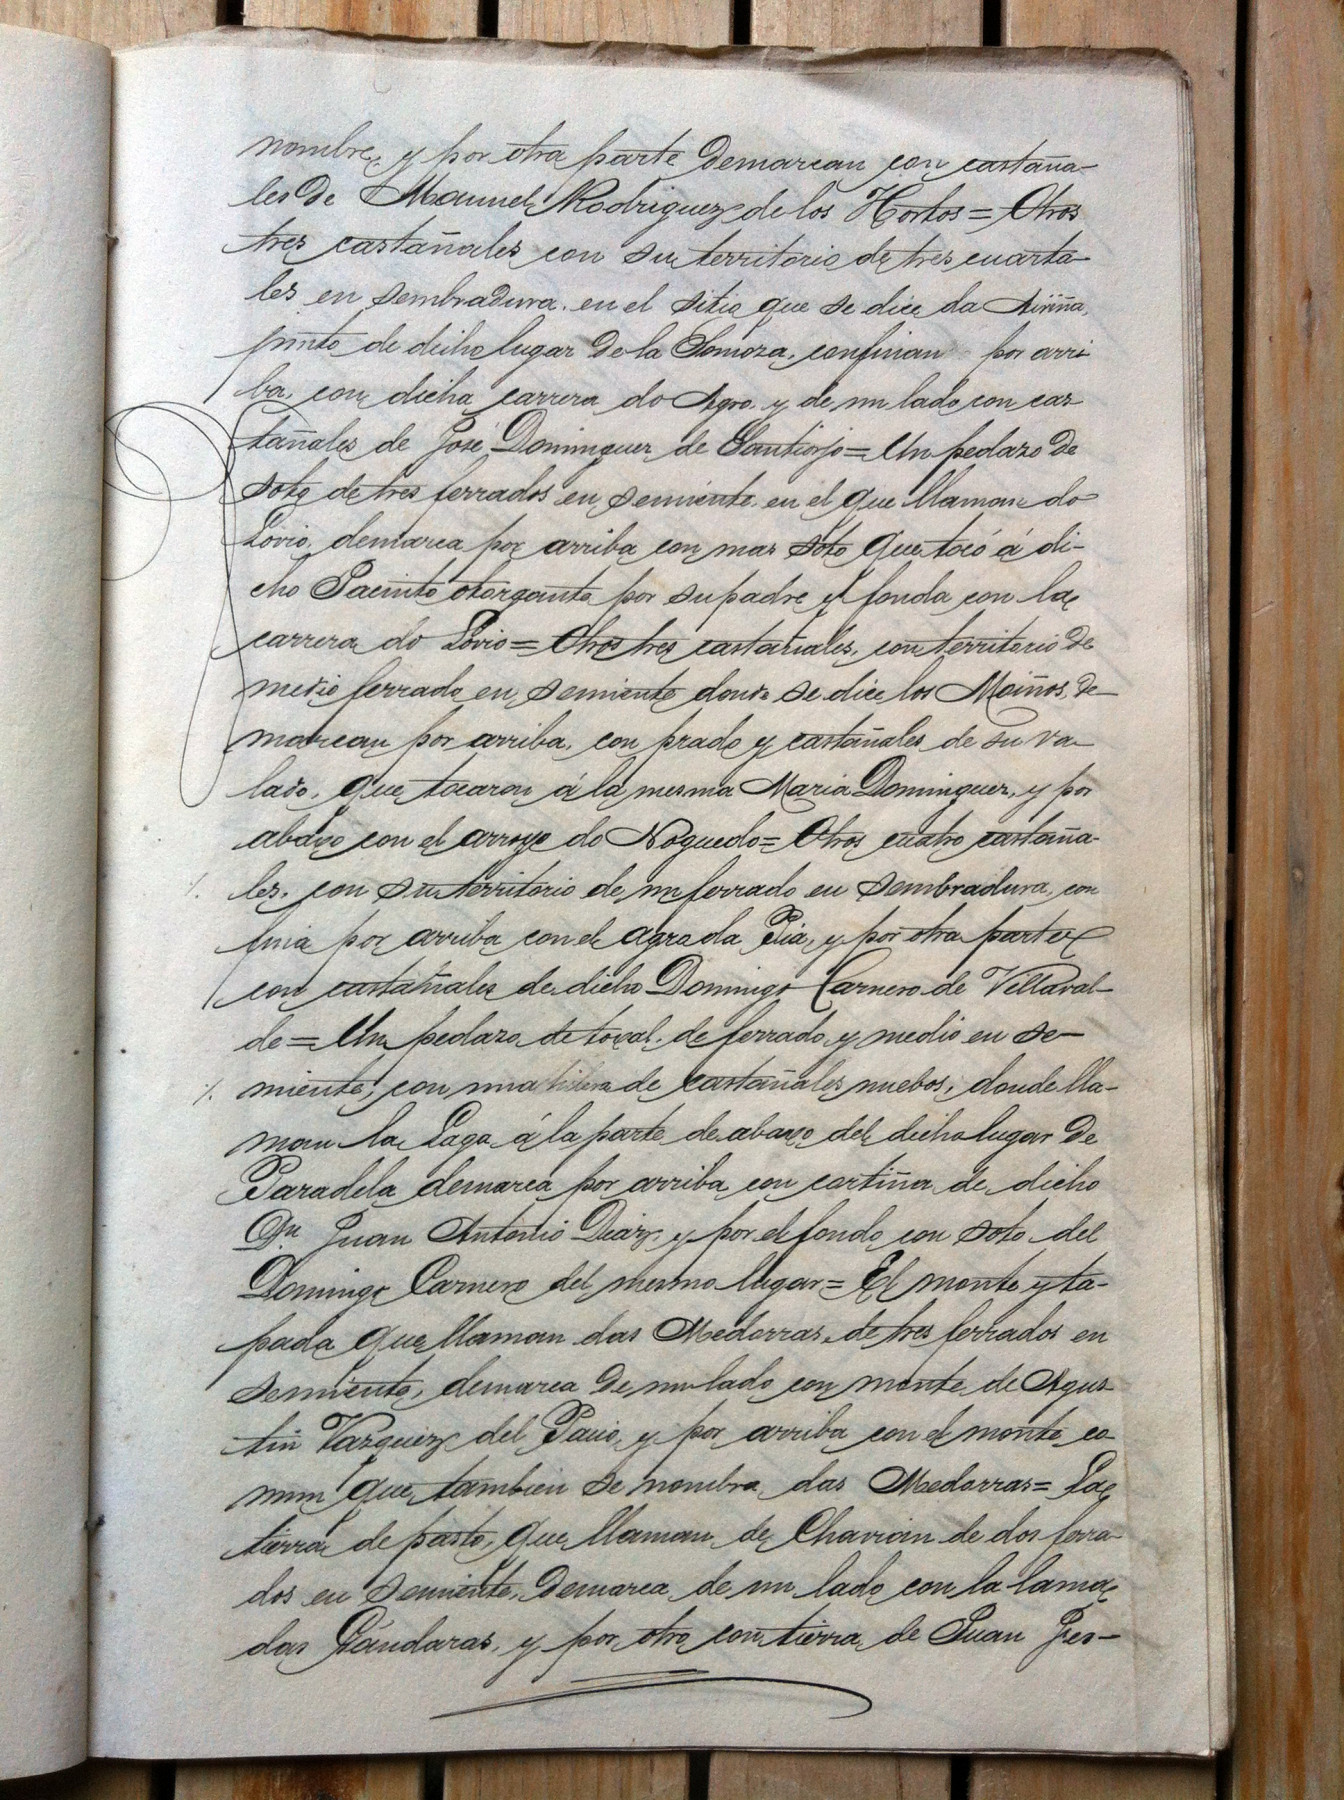 nombre, y por otra parte demarcan con castaña-
les de Manuel Rodriguez de los Hortos = Otros
tres castañales con su territorio de tres cuarta-
les en sembradura. en el sitio que se dice da
junto de dicho lugar de la Somoza, confinan por arri
ba, con dicha carrera do Agro, y de un lado con cas
tañales de José Dominguez de Santiorjo = Un pedazo de
soto de tres ferrados en semiente, en el que llaman do
Lovio, demarca por arriba con mas soto que tocó á di-
cho Jacinto otorgante por su padre y fonda con la
carrera do Lovio = Otros tres castañales, con territorio de
medio ferrado en semiente donde se dice los Moiños, de-
marcan por arriba, con prado y castañales de su va-
lado, que tocaron á la mesma Maria Dominguez, y por
abaxo con el arroyo do Noguedo = Otros cuatro castaña-
les, con su territorio de un ferrado en sembradura, con
fina por arriba con el agra da Pia, y por otra parte
con castañales de dicho Domingo Carnero de Villaval-
de = Un pedazo de toxal, de ferrado y medio en se-
miente, con una de castañales nuebos, donde lla-
man la Laga á la parte de abaxo del dicho lugar de
Paradela demarca por arriba con cortiña de dicho
Dn Juan Antonio Diaz, y por el fondo con soto del
Domingo Carnero del mesmo lugar = El monte y ta-
pada que llaman das Medorras, de tres ferrados en
semiente, demarca de un lado con monte de Agus
tin Vazquez del Pacio, y por arriba con el monte co
mun que tambien se nombra das Medorras = La
tierra de pasto, que llaman de Chavian de dos ferra-
dos en semiente, demarca de un lado con la lama
das Gándaras, y por otro con tierra de Juan Gres-